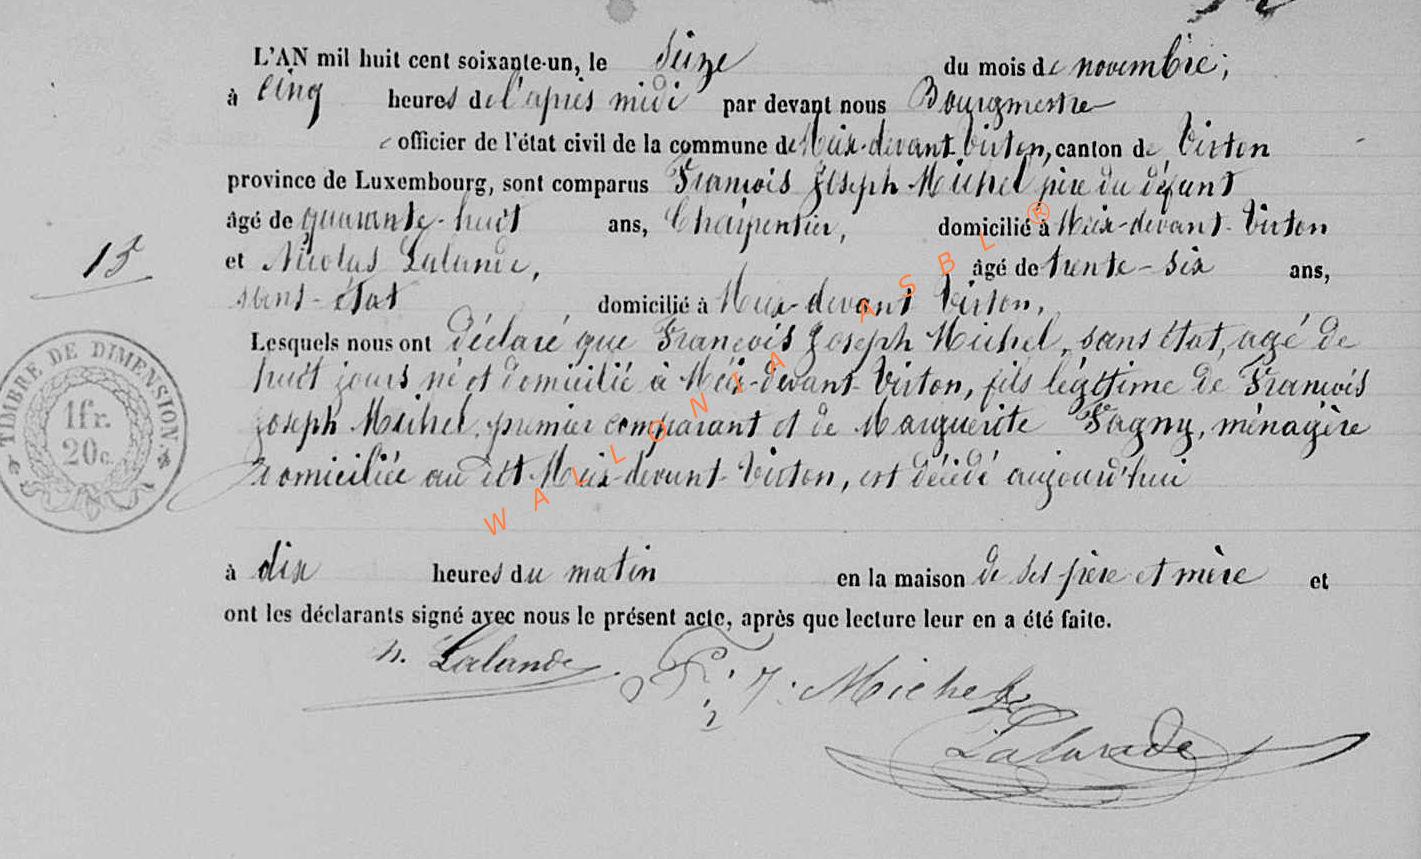 L'AN mil huit cent soixante-un, le Seize du mois de novembre;
à cinq heures de l'après midi par devant nous Bourgmestre
officier de l'état civil de la commune de Meix-devant Virton, canton de Virton
province de Luxembourg, sont comparus François Joseph Michel, père du défunt
âgé de quarante-huit ans, Charpentier, domicilié à Meix-devant-Virton
15
et Nicolas Lalande, âgé de trente-six ans,
sans-état domicilié à Meix-devant Virton,
Lesquels nous ont déclaré que François Joseph Michel, sans état, agé de
huit jours né et domicilié à Meix-devant-Virton, fils légitime de François
Joseph Michel, premier comparant et de Marguerite Fagny, ménagère
domiciliée au dit Meix-devant-Virton, est décédé aujourd'hui
TIMBRE DE DIMENSION
1 fr.
20 c.
à dix heures du matin en la maison de ses père et mère et
ont les déclarants signé avec nous le présent acte, après que lecture leur en a été faite.
N. Lalande F. J. Michel
Lalande
WALLONIA ASBL ®